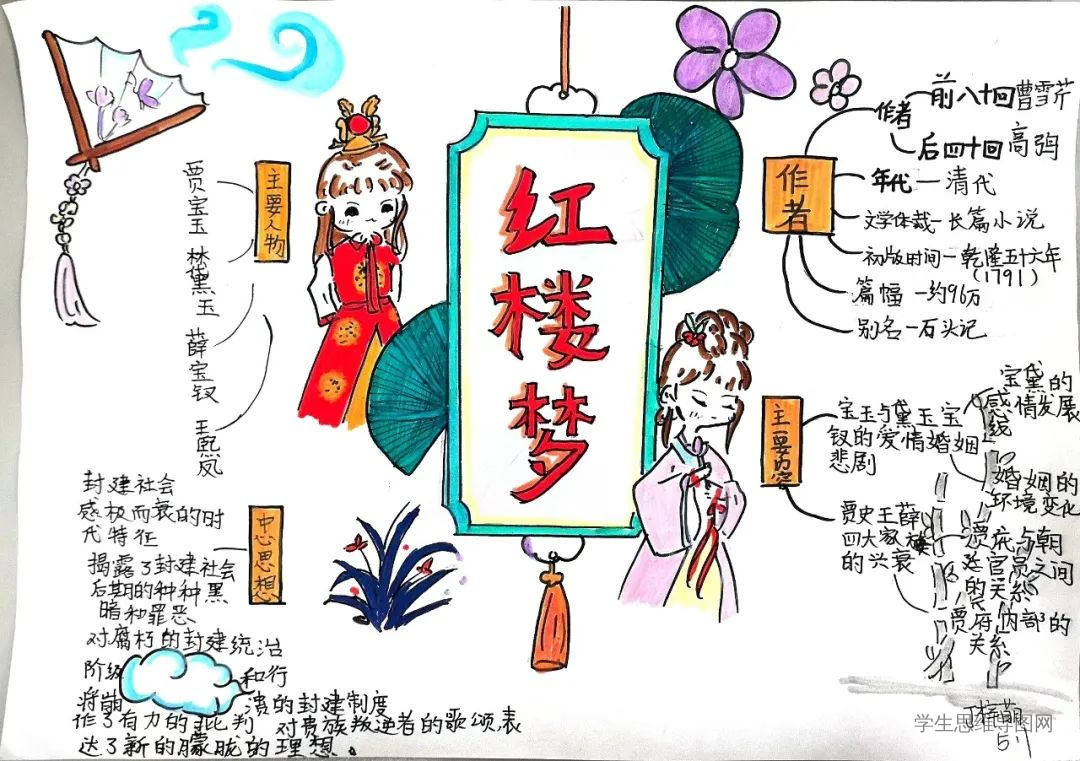 红楼梦
主要人物
贾宝玉
林黛玉
薛宝钗
王熙凤
作者
作者
前八十回曹雪芹
后四十回高鹗
年代一清代
文学体裁一长篇小说
初版时间一乾隆五十六年
(1791)
篇幅一约96万
别名一石头记
主要内容
宝玉与黛玉宝
钗的爱情婚姻
悲剧
宝黛的
感情发展
线
婚姻的
环境变化
贾史王薛
四大家族
的兴衰
贾府与朝
廷官员之间
的关系
贾府内部的
关系
中心思想
封建社会
感极而衰的时
代特征
揭露了封建社会
后期的种种黑
暗和罪恶
对腐朽的封建统治
阶级
和行
将崩
溃的封建制度
作了有力的批判
对贵族叛逆者的歌颂,表
达了新的朦胧的理想。
学生思维导图网